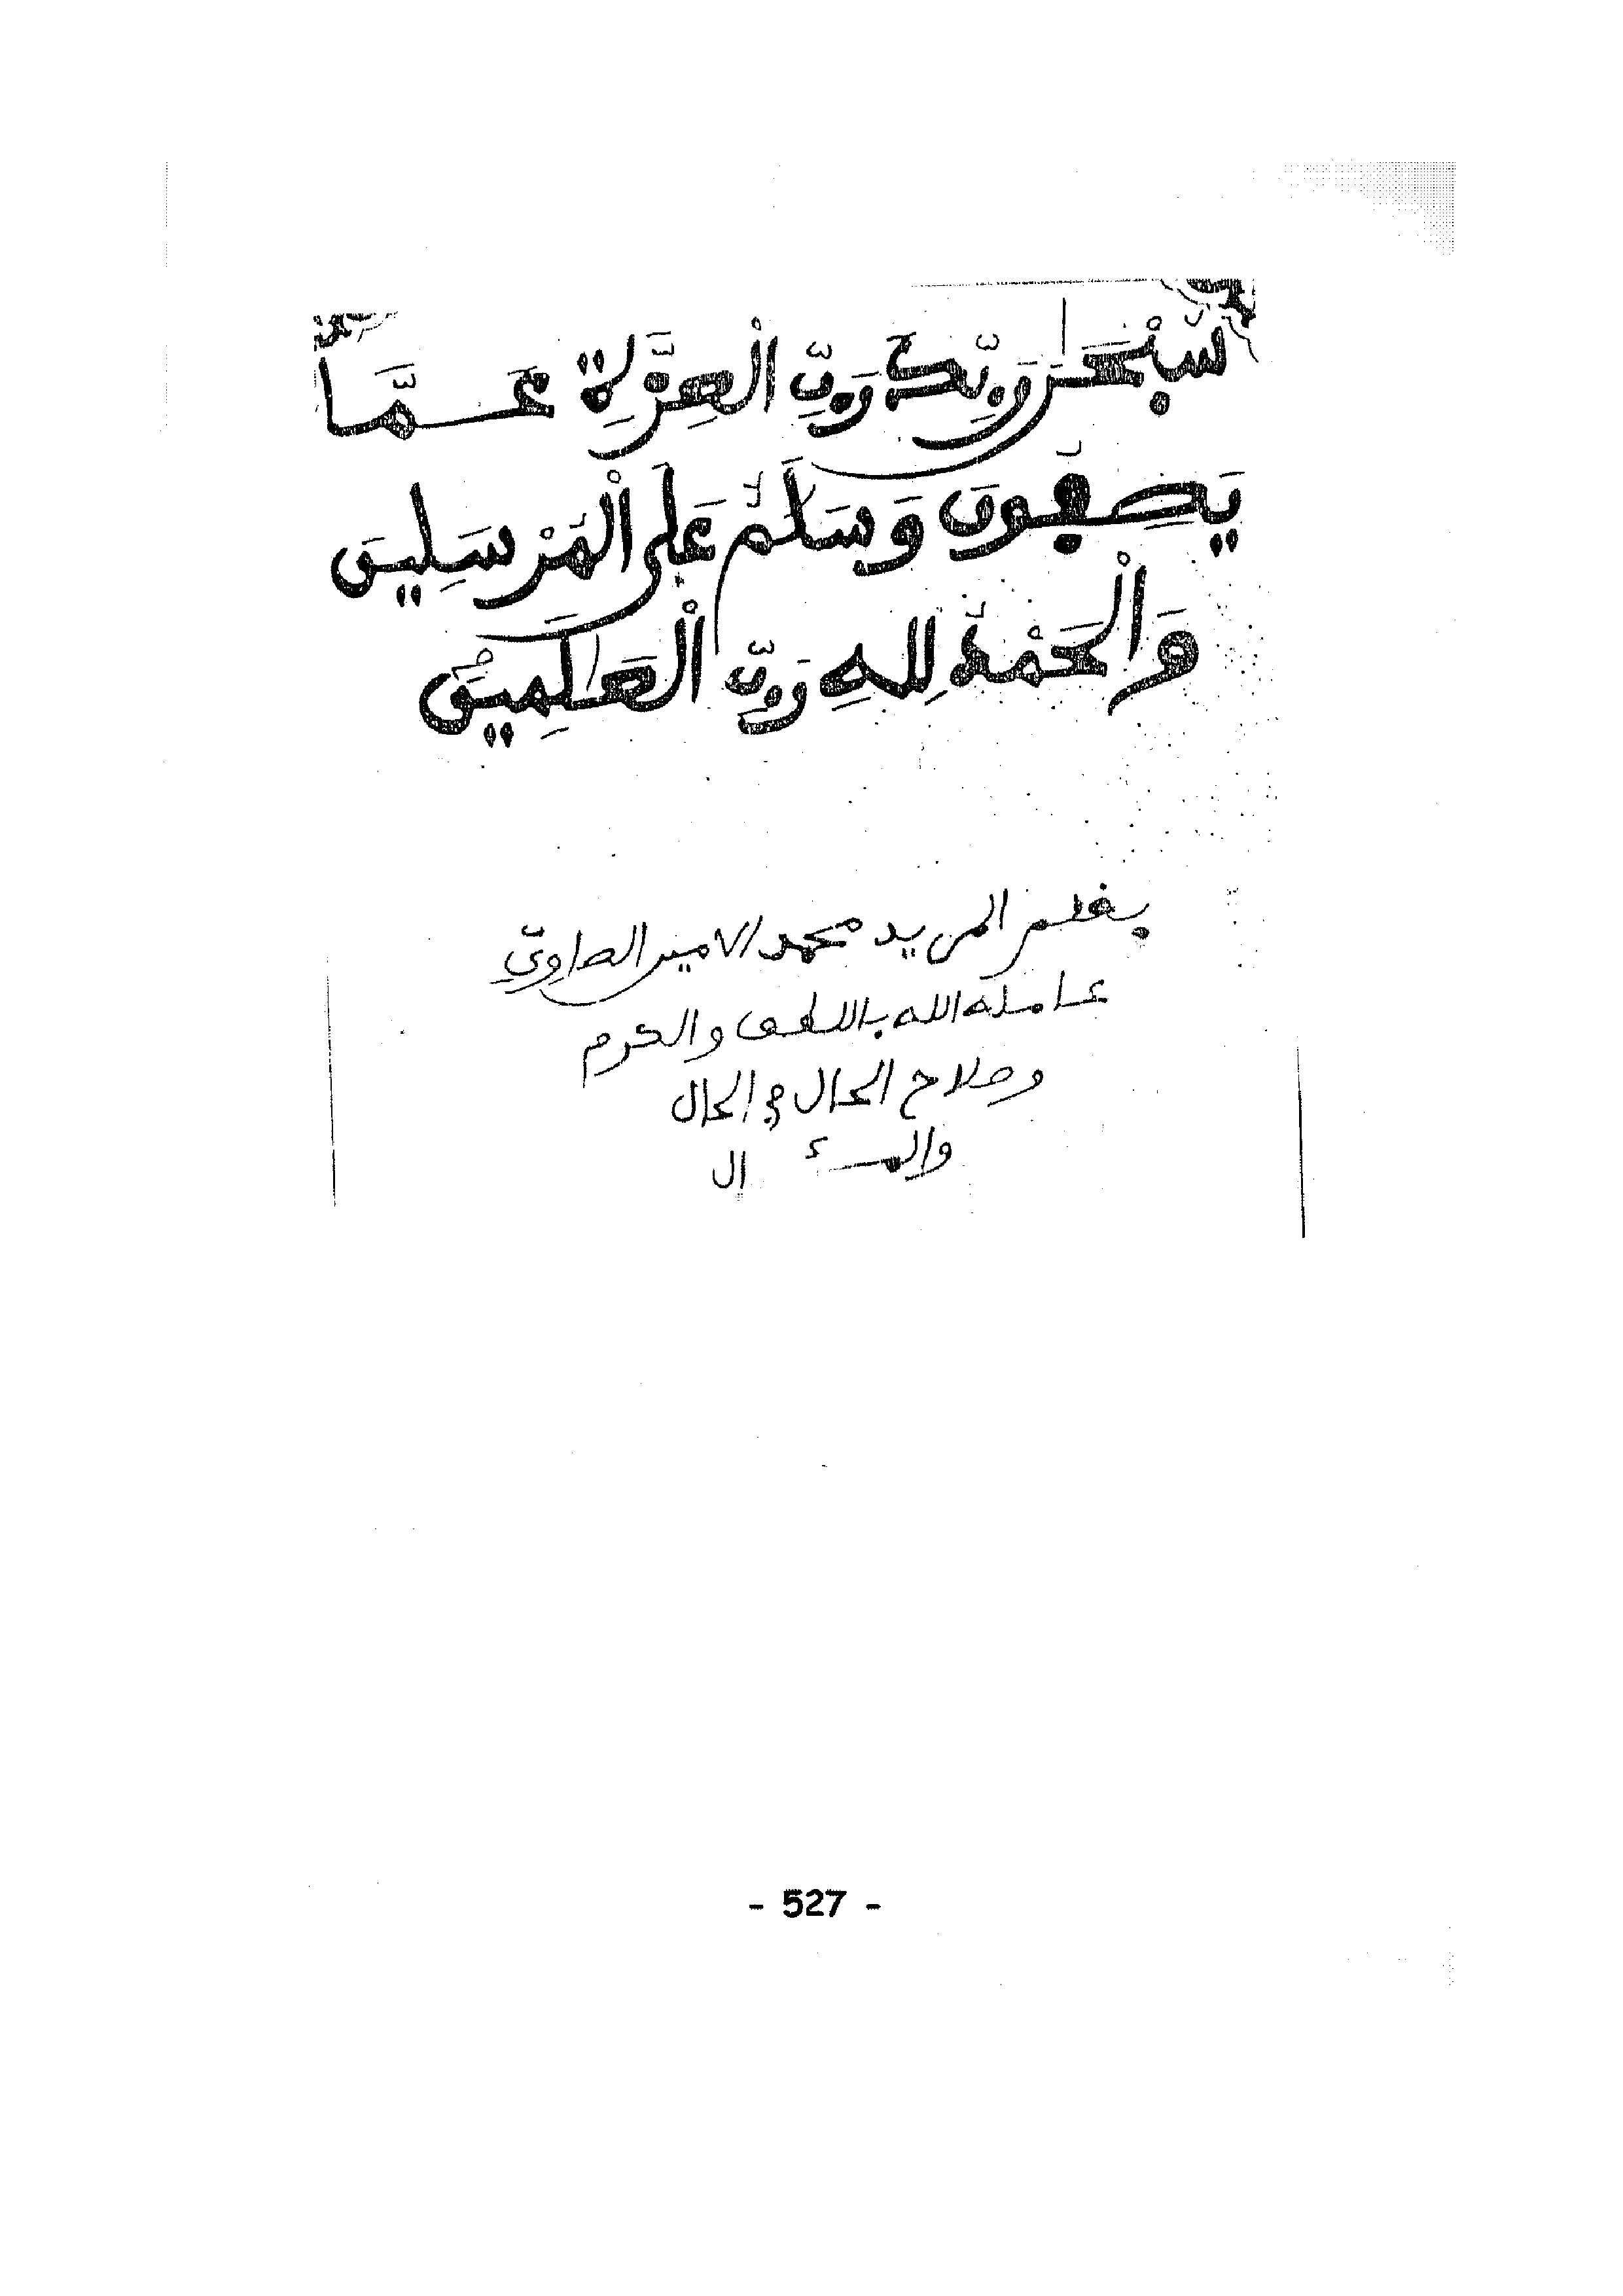 سُبْحَٰنَ رَبِّكَ رَبِّ الْعِزَّةِ عَمَّا
يَصِفُونَ وَسَلَٰمٌ عَلَى الْمُرْسَلِينَ
وَالْحَمْدُ لِلهِ رَبِّ الْعَٰلَمِينَ
بقلم المريد محمد الامين الصاوي
عامله الله باللطف والكرم
وصلاح الحال في الحال
والمــــئال
- 527 -